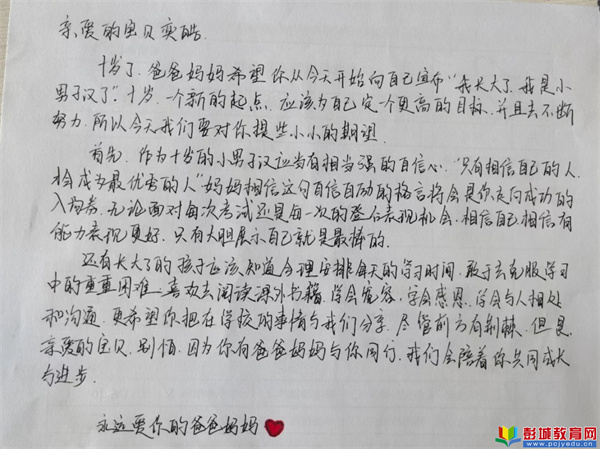 亲爱的宝贝奕皓.
十岁了.爸爸妈妈希望你从今天开始向自己宣布“我长大了.我是小
男子汉了”.十岁.一个新的起点.应该为自己定一个更高的目标.并且去不断
努力.所以今天我们要对你提些小小的期望.
首先.作为十岁的小男子汉应当有相当强的自信心.“只有相信自己的人.
才会成为最优秀的人”妈妈相信这句自信自励的格言将会是你走向成功的
入场券.无论面对每次考试还是每一次的登台表现机会.相信自己.相信有
能力表现更好.只有大胆展示自己就是最棒的.
还有长大了的孩子应该知道合理安排每天的学习时间.敢于去克服学习
中的重重困难.喜欢去阅读课外书籍.学会宽容.学会感恩.学会与人相处
和沟通.更希望你把在学校的事情与我们分享.尽管前方有荆棘.但是.
亲爱的宝贝.别怕.因为你有爸爸妈妈与你同行.我们会陪着你共同成长
与进步.
永远爱你的爸爸妈妈
彭城教育网
pcjyw.com